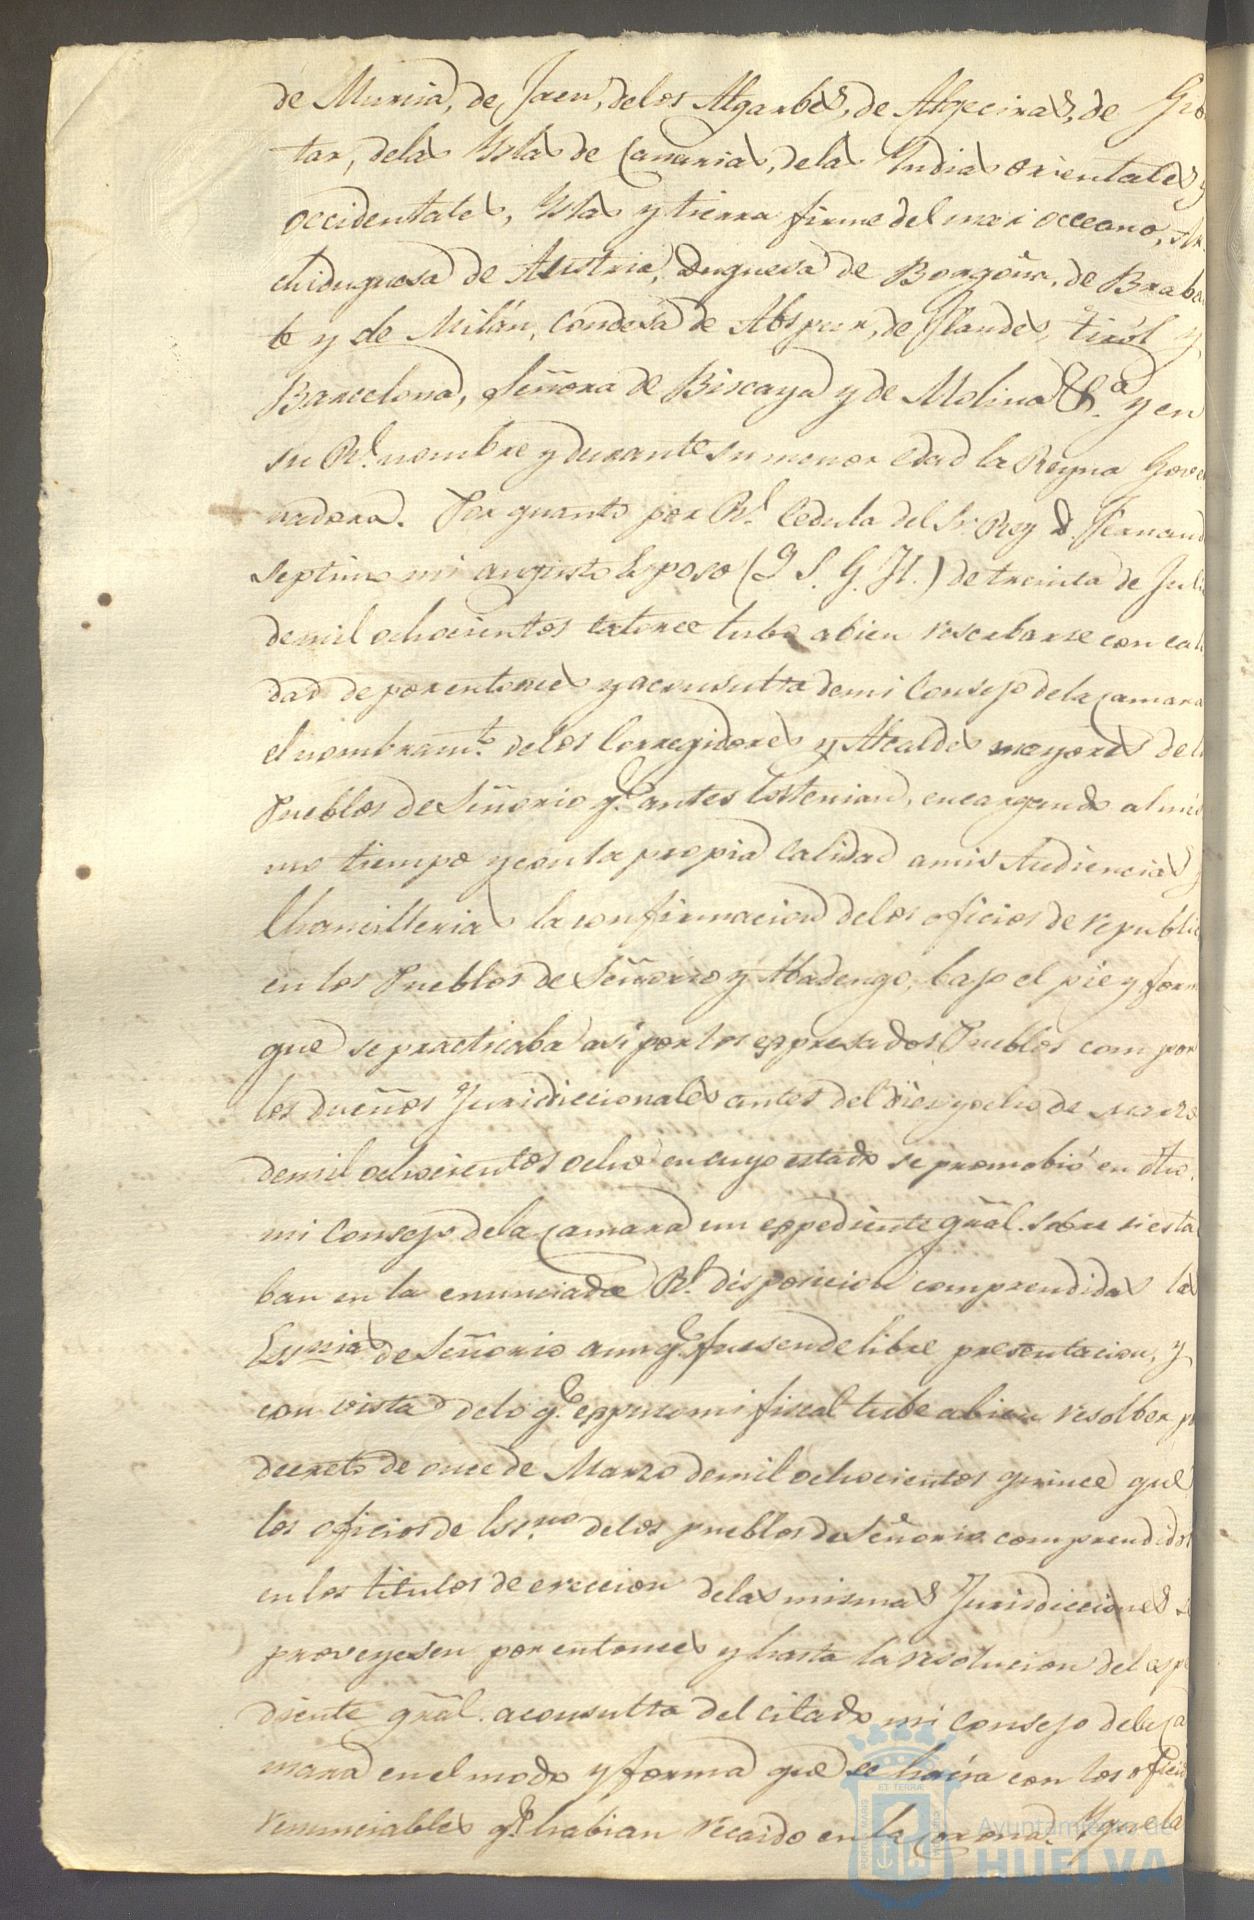 de Murcia, de Jaen, delos Algarbes, de Algeciras, de
tar, delas Yslas de Canarias, delas Yndias orientales y
occidentales, Yslas y tierra firme del mar occeano, Ar
chiduquesa de Austria, Duquesa de Borgoña, de Braban
te y de Milán, Condesa de Abspur, de Flandes, tiról y
Barcelona, Señora de Biscaya y de Molina &.ª y en
su Rl. nombre y durante su menor edad la Reyna Gover
nadora. Por quanto por Rl. Cedula del Sr. Rey D. Fernand
septimo mi augusto Esposo (Q S. G. H.) de treinta de Juli
demil ochocientos catorce tubo abien reserbarse con cali
dad de por entonces y aconsulta demi Consejo dela Camara
el nombramto. delos Corregidores y Alcaldes mayores de l
Pueblos de Señorio qe. antes los tenian, encargando al mis
mo tiempo y con la propia calidad amis Audiencias y
Chancillerias la confirmacion delos oficios de republic
en los Pueblos de Señorio y Abadengo, bajo el pie y form
que se practicaba asi por los expresados Pueblos com por
los dueños Juridiccionales antes del diez y ocho de marzo
demil ochocientos ocho en cuyo estado se promobió en dho.
mi Consejo dela Camara un expediente grãl. sobre si esta
ban en la enunciada Rl. disposicion comprendidas las
Essnias de Señorio aunqe. fuesen de libre presentacion, y
con vista delo qe. expuso mi fiscal tube abien resolber p
decreto de once de Marzo demil ochocientos quince que
los oficios de Essno delos pueblos de Señorio comprendidos
en los titulos de ereccion delas mismas Jurisdicciones se
proveyesen por entonces y hasta la resolucion del espe
diente grãl. aconsulta del citado mi Consejo dela Ca
mara en el modo y forma que se hacia con los oficio
renunciables qe. habian recaido en la Corona. Y que la
PORTUS MARIS ET TERRÆ CUSTODIA
Ayuntamiento de
HUELVA